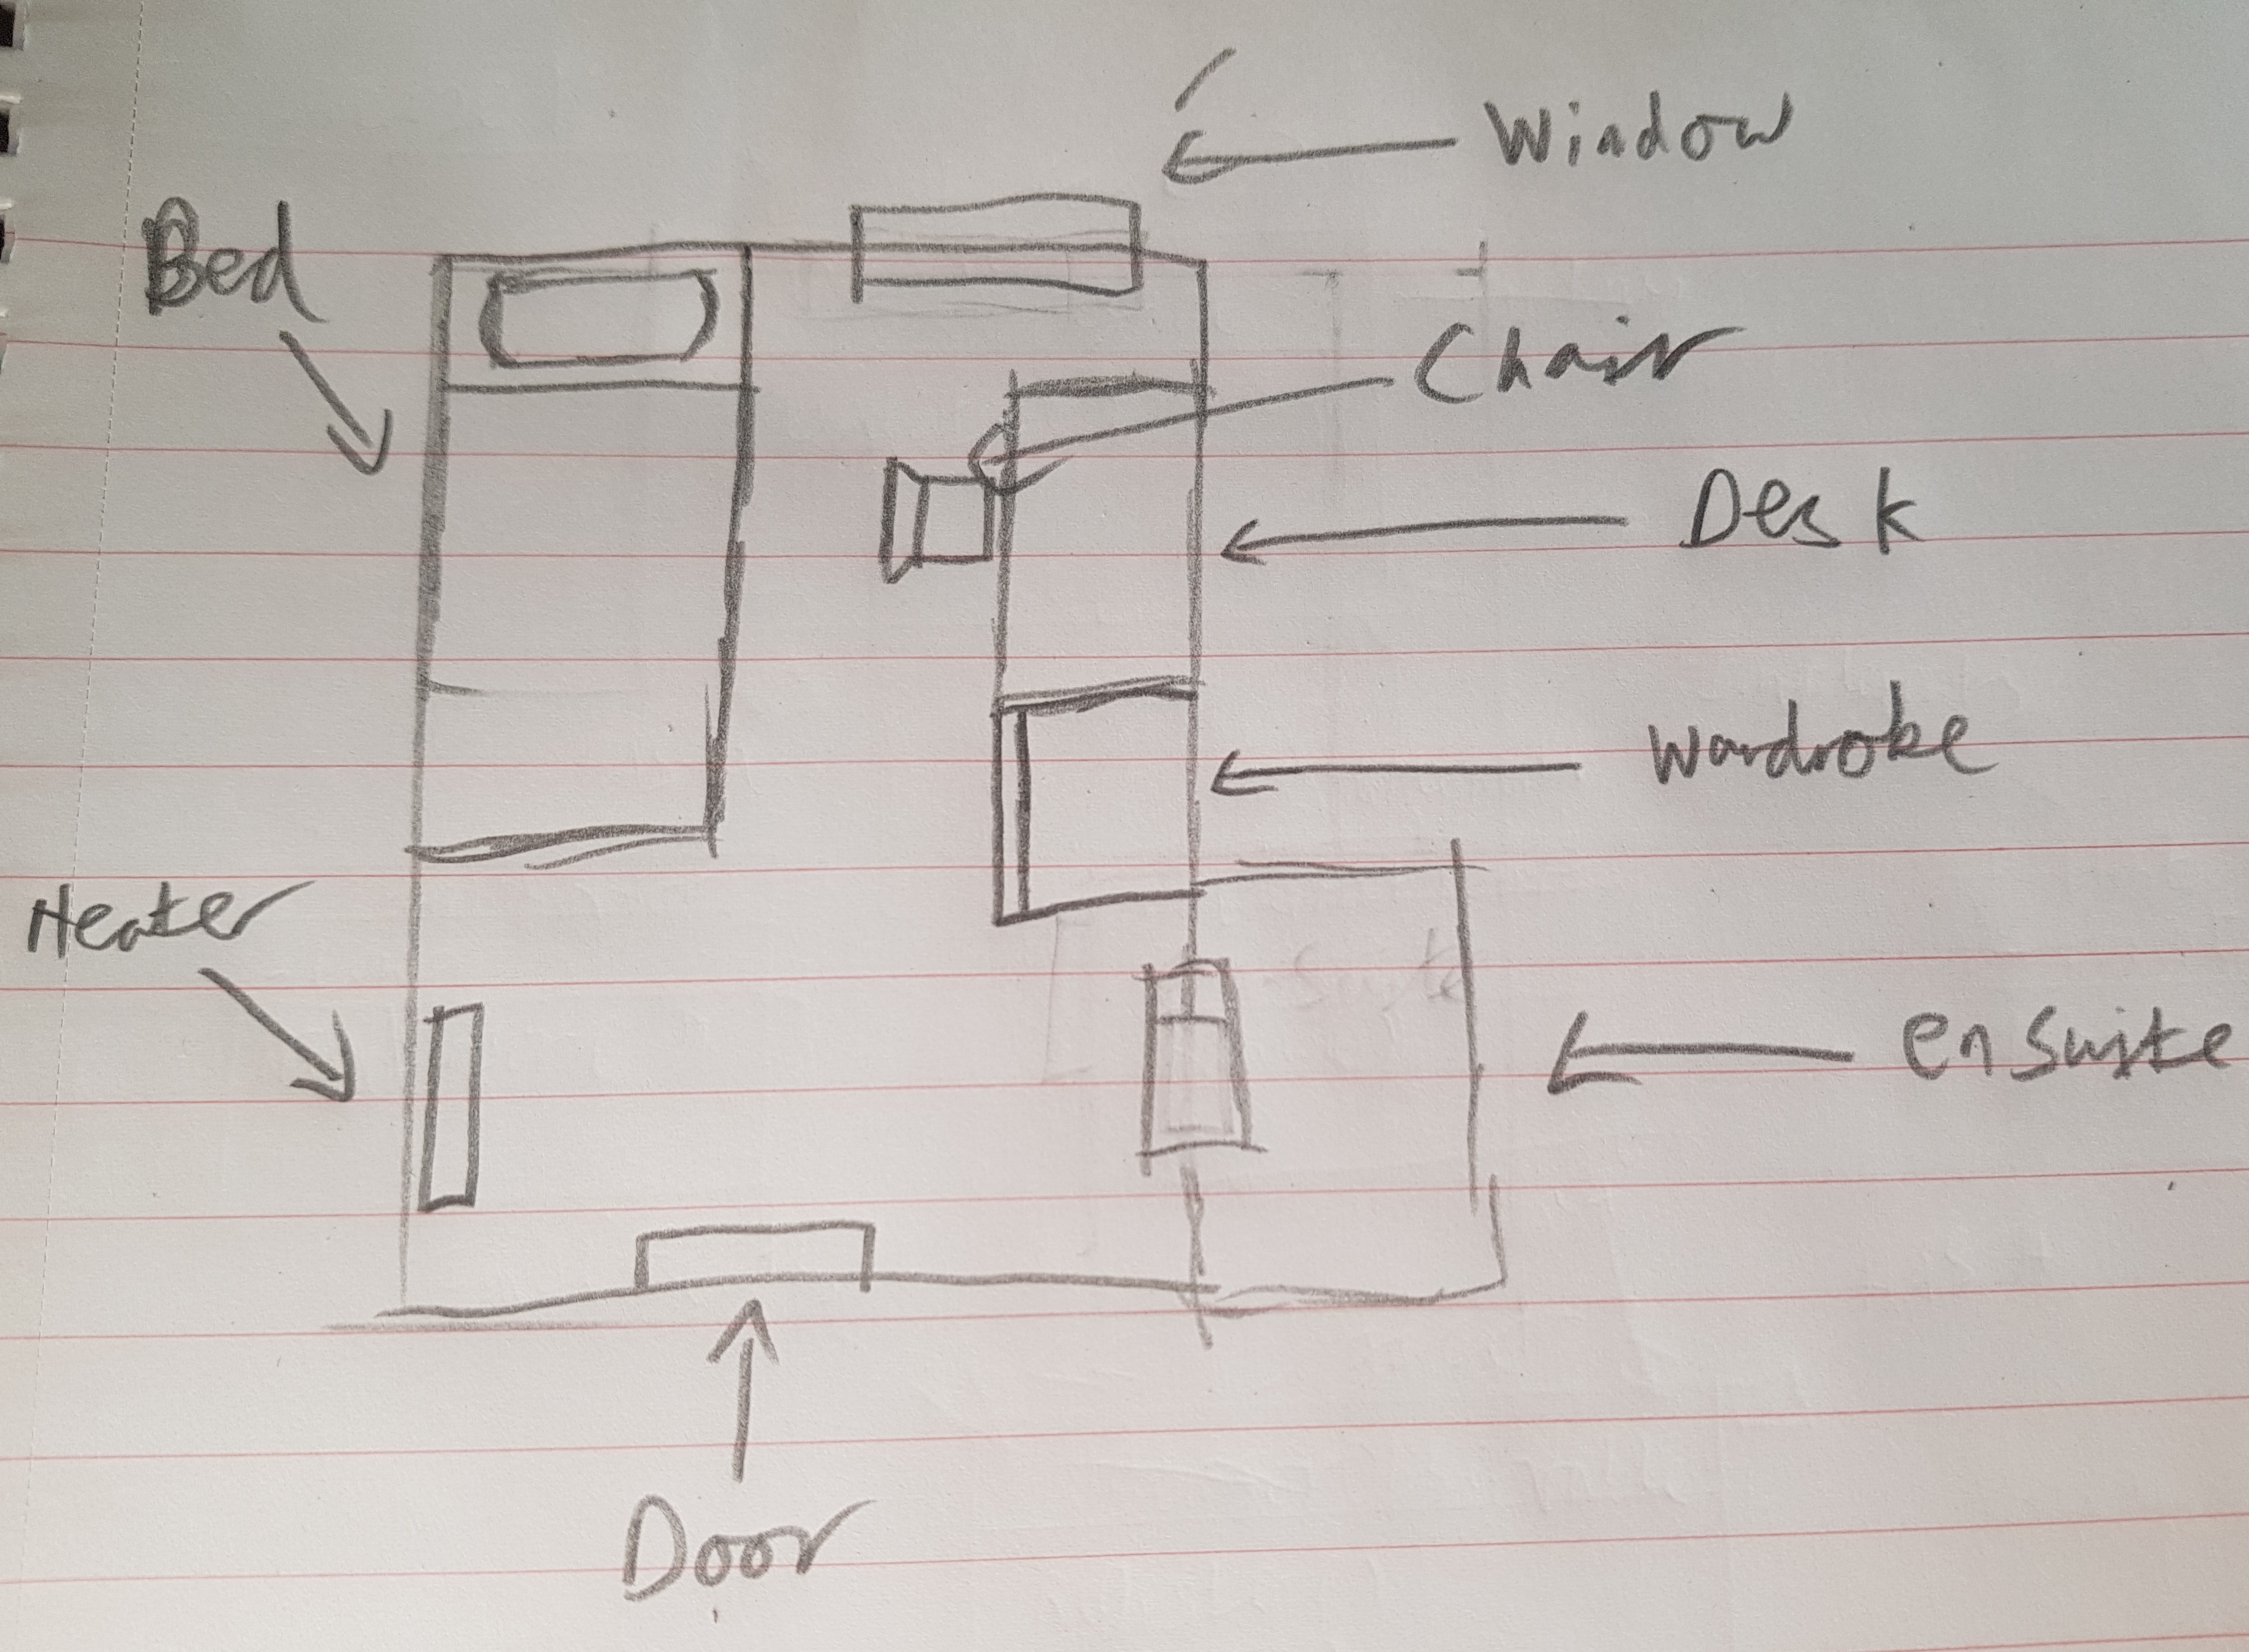 Window
Bed
Chair
Desk
Wardrobe
Heater
Suite
ensuite
Door